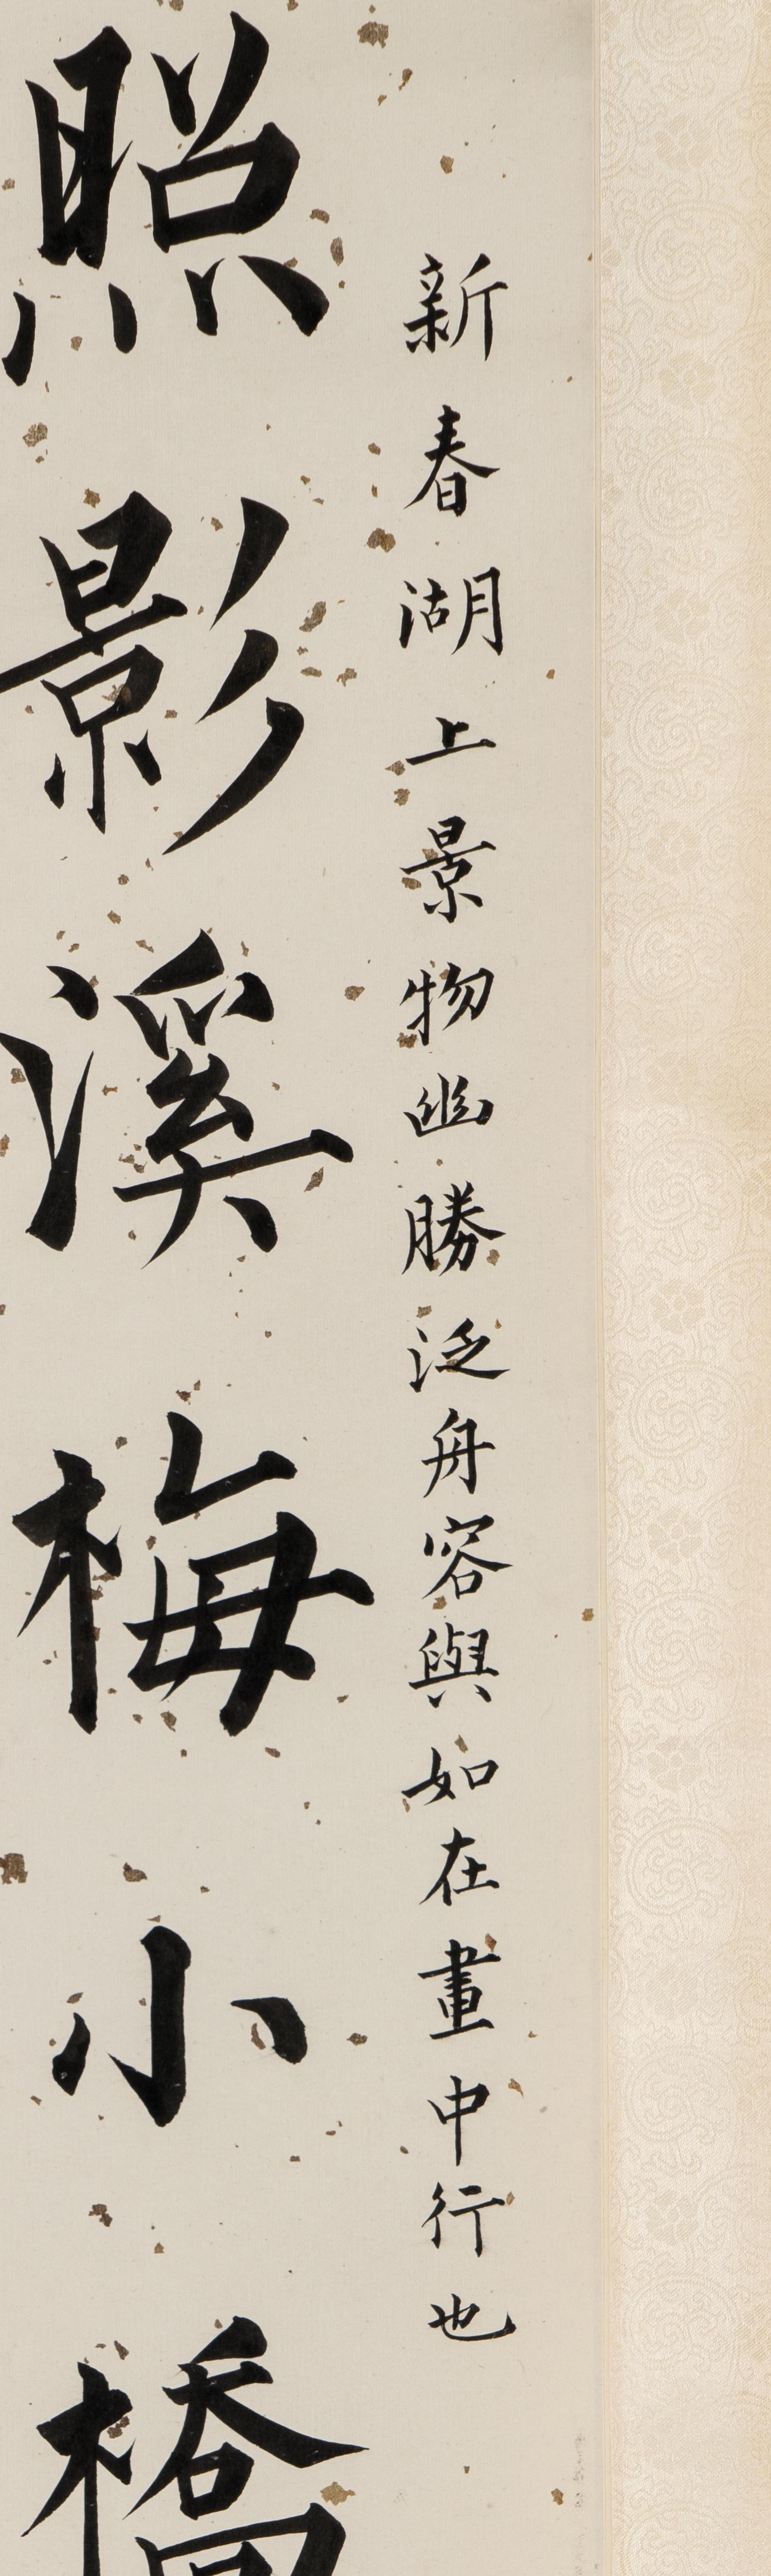 新春湖上景物幽勝泛舟容與如在畫中行也
照影溪梅小橋